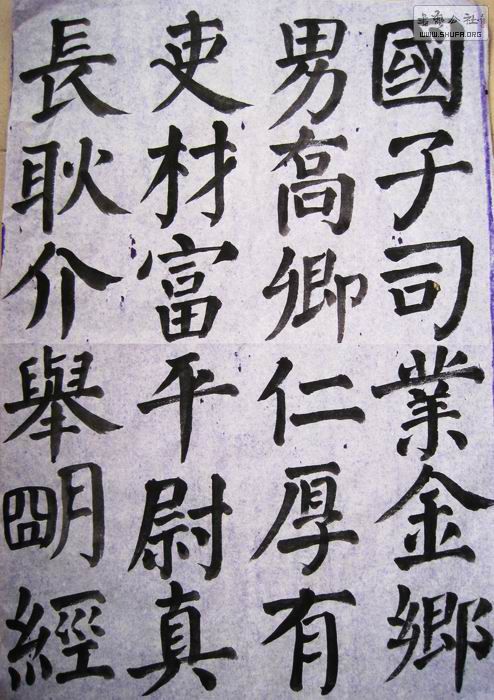 國子司業金鄉
男喬卿仁厚有
吏材富平尉真
長耿介舉朙經
公社
WWW.SHUFA.ORG